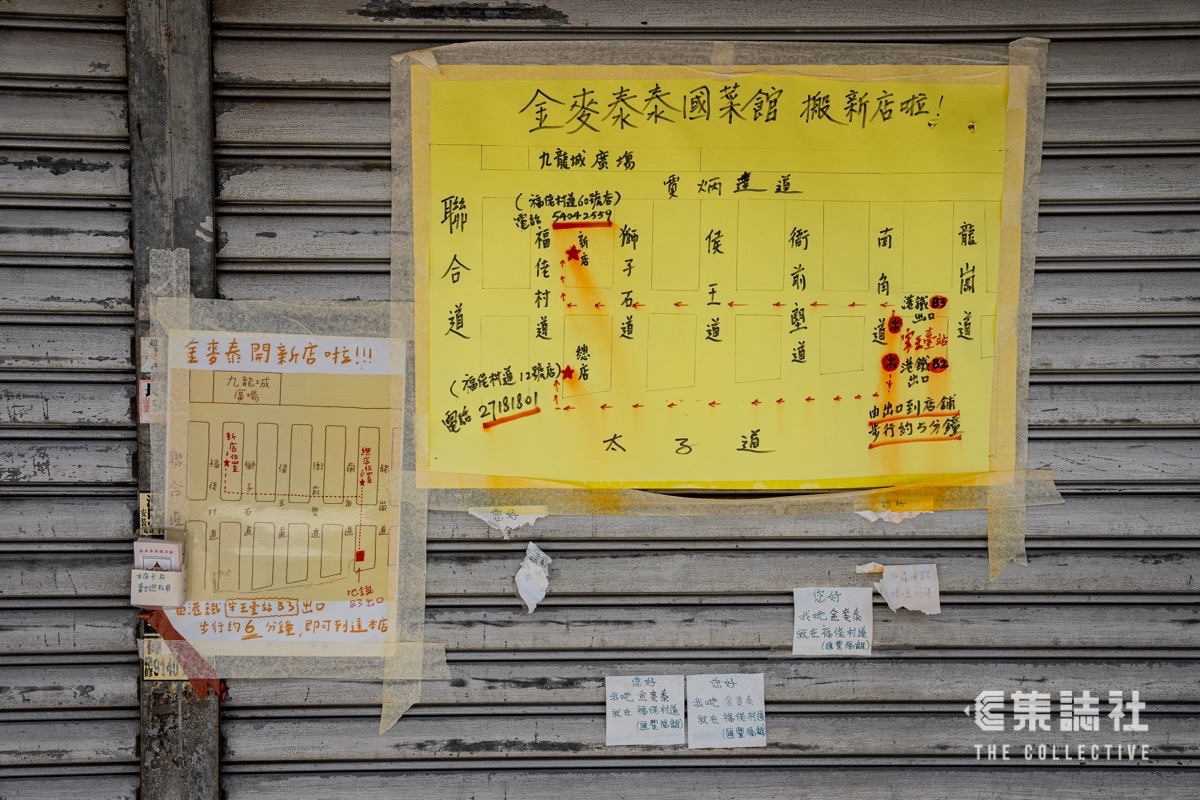 金麥泰泰國菜館 搬新店啦!
九龍城廣場
賈炳達道
聯合道
(福佬村道60號店)
電話 54042559
福佬村道
新店
獅子石道
侯王道
衙前塱道
南角道
龍崗道
港鐵 B3
出口
宋王臺站
港鐵 B2
出口
總店
(福佬村道12號店)
電話 27181801
由出口到店鋪
步行約5分鐘
太子道
金麥泰開新店啦!!!
九龍城
廣場
聯合道
新店位置
總店位置
福佬村道
獅子石道
侯王道
衙前塱道
南角道
龍崗道
地鐵
B3出口
由港鐵宋王臺站B3出口
步行約6分鐘,即可到達本店
歡迎取用
9140
您好
您好
我哋金麥泰
就在福佬村道
(匯豐隔離)
您好
我哋金麥泰
就在福佬村道
(匯豐隔離)
您好
我哋金麥泰
就在福佬村道
(匯豐隔離)
集誌社
THE COLLECTIVE